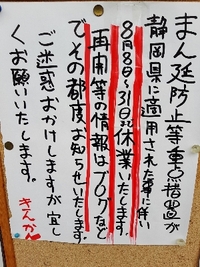 まん延防止等重点措置が
静岡県に適用された事に伴い
8月8日〜31日迄休業いたします。
再開等の情報はブログなど
でその都度お知らせいたします。
ご迷惑おかけしますが宜し
くお願いいたします。
きんかん